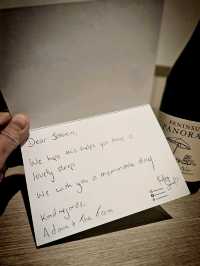 Dear
We hope this helps you have a
lovely sleep
We wish you a memorable stay
Kind regards,
Adam & The Team
PENINSU
PANORA